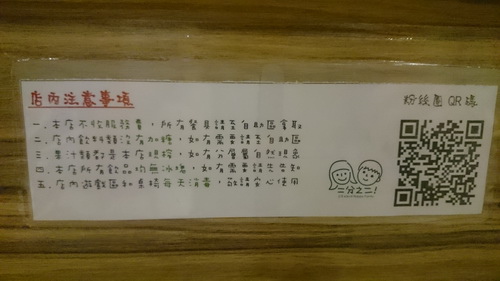 店內注意事項
粉絲團 QR碼
一.本店不收服務費,所有餐具請至自助區拿取
二.店內飲料類沒有加糖,如有需要請至自助區
三.果汁類都是本店現榨,如有分層屬自然現象
四.本店所有飲品均無冰塊,如有需要請先告知
五.店內遊戲區和桌椅每天消毒,敬請安心使用
二分之二!